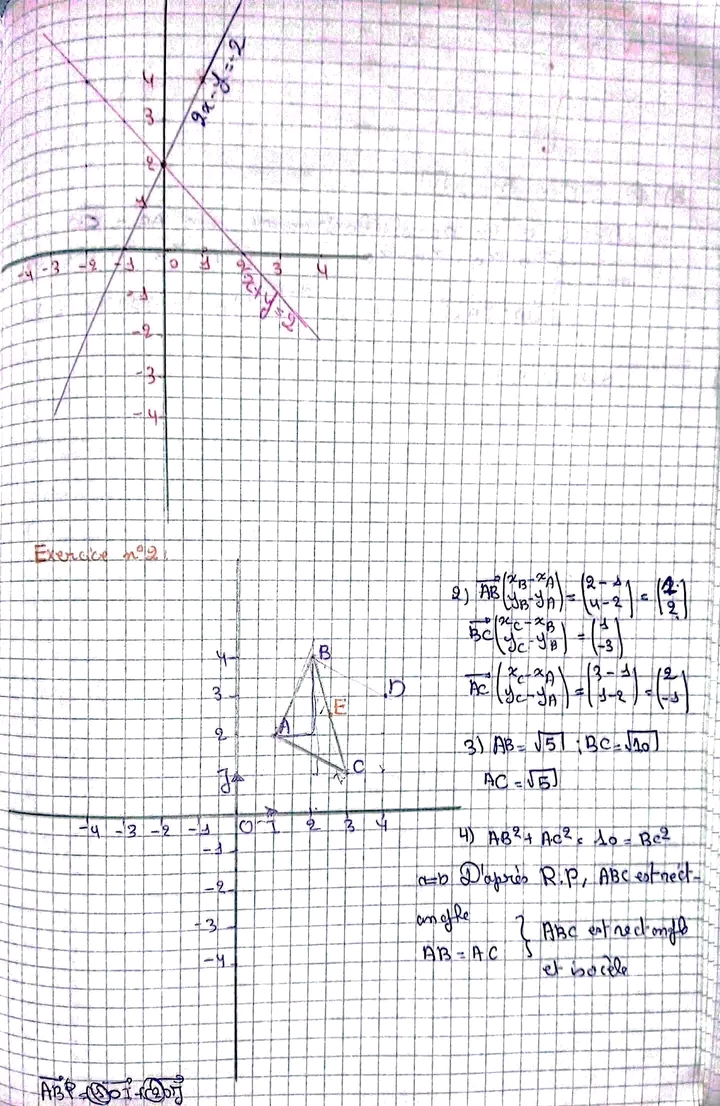 4
3
2
1
-4 -3 -2 -1 0 1 2 3 4
-1
-2
-3
-4
2x-y=-2
x+y=2
Exercice n°2:
4
3
2
J
-4 -3 -2 -1 0 I 2 3 4
-1
-2
-3
-4
A
B
C
D
E
2) AB (xB-xA / yB-yA) = (2-1 / 4-2) = (1 / 2)
BC (xC-xB / yC-yB) = (1 / -3)
AC (xC-xA / yC-yA) = (3-1 / 1-2) = (2 / -1)
3) AB= √5 ; BC=√10
AC = √5
4) AB²+ AC² = 10 = BC²
D'après R.P, ABC est rect-
angle
AB = AC } ABC est rectangle
et isocèle